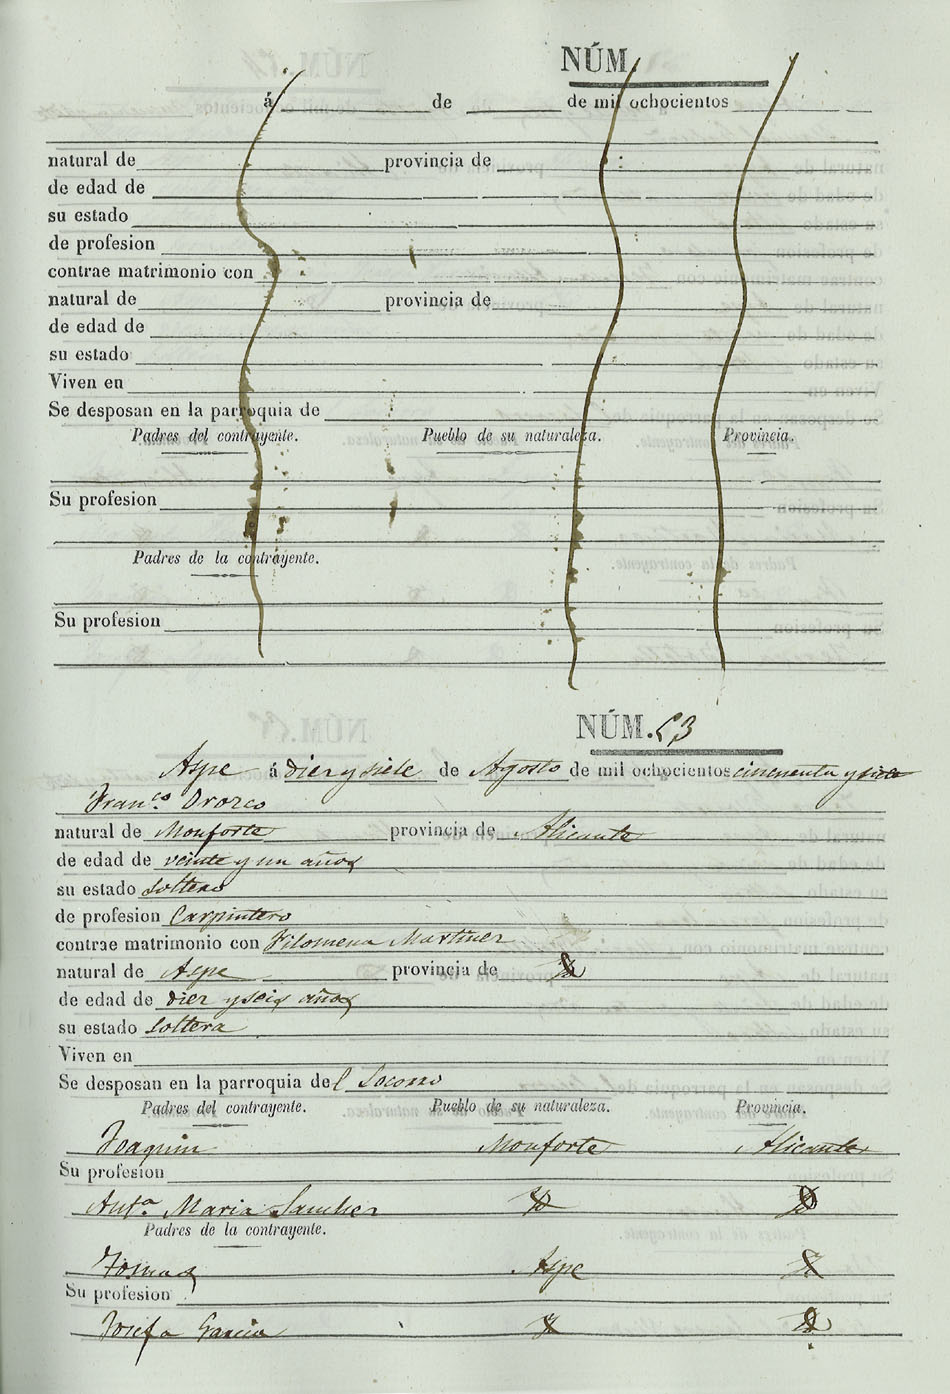 NÚM.
á de de mil ochocientos
natural de provincia de
de edad de
su estado
de profesion
contrae matrimonio con
natural de provincia de
de edad de
su estado
Viven en
Se desposan en la parroquia de
Padres del contrayente. Pueblo de su naturaleza. Provincia.
Su profesion
Padres de la contrayente.
Su profesion
NÚM. 53
Aspe á diez y siete de Agosto de mil ochocientos cincuenta y siete
Franco. Orozco
natural de Monforte provincia de Alicante
de edad de veinte y un años
su estado Soltero
de profesion Carpintero
contrae matrimonio con Filomena Martinez
natural de Aspe provincia de
de edad de diez y seis años
su estado Soltera
Viven en
Se desposan en la parroquia del Socorro
Padres del contrayente. Pueblo de su naturaleza. Provincia.
Joaquin Monforte Alicante
Su profesion
Anta. Maria Sanchez
Padres de la contrayente.
Tomas Aspe
Su profesion
Josefa Garcia